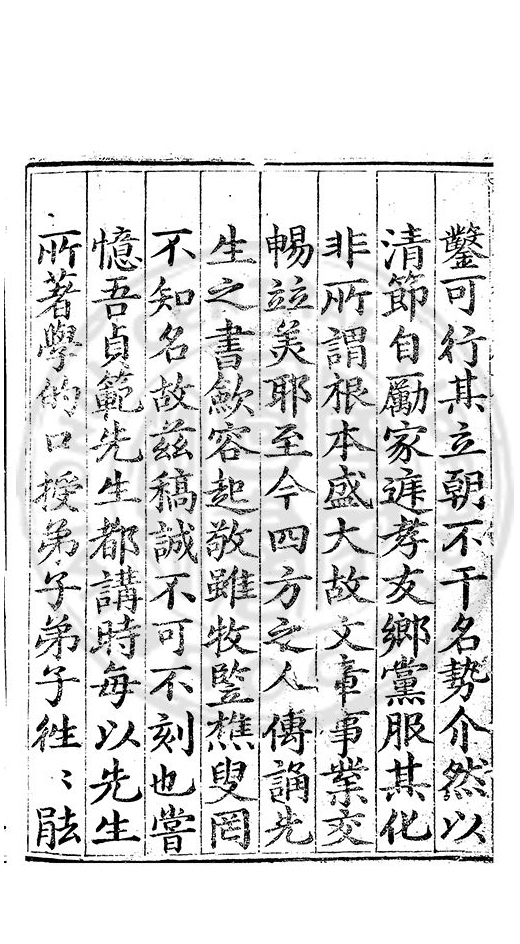 鑿可行其立朝不干名勢介然以
清節自勵家遽孝友鄉黨服其化
非所謂根本盛大故文章事業交
暢竝美耶至今四方之人傳誦先
生之書歛容起敬雖牧豎樵叟罔
不知名故茲稿誠不可不刻也嘗
憶吾貞範先生都講時每以先生
所著學的口授弟子弟子徃〻能